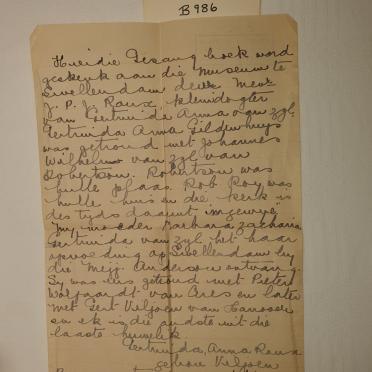 B 986
Hierdie Gesang boek word
geskenk aan die Museum te
Swellendam deur Mev.
J. P. J. Roux, kleindogter
van Gertruida Anna van Zyl.
Gertruida Anna Gildenhuys
was getroud met Johannes
Wilhelmus van Zyl van
Robertson. Robertson was
hulle plaas. Rob Roy was
hulle huis en die kerk is
destyds daarin ingewy"
My moeder Barbara Zacharia
Gertruida van Zyl het haar
opvoeding op Swellendam by
die Mej. Anderson ontvang.
Sy was eers getroud met Pieter
Wolfaardt van Ceres en later
met Gert Viljoen van
en ek is die oudste uit die
laaste huwelik
Gertruida, Anna Roux
gebore Viljoen